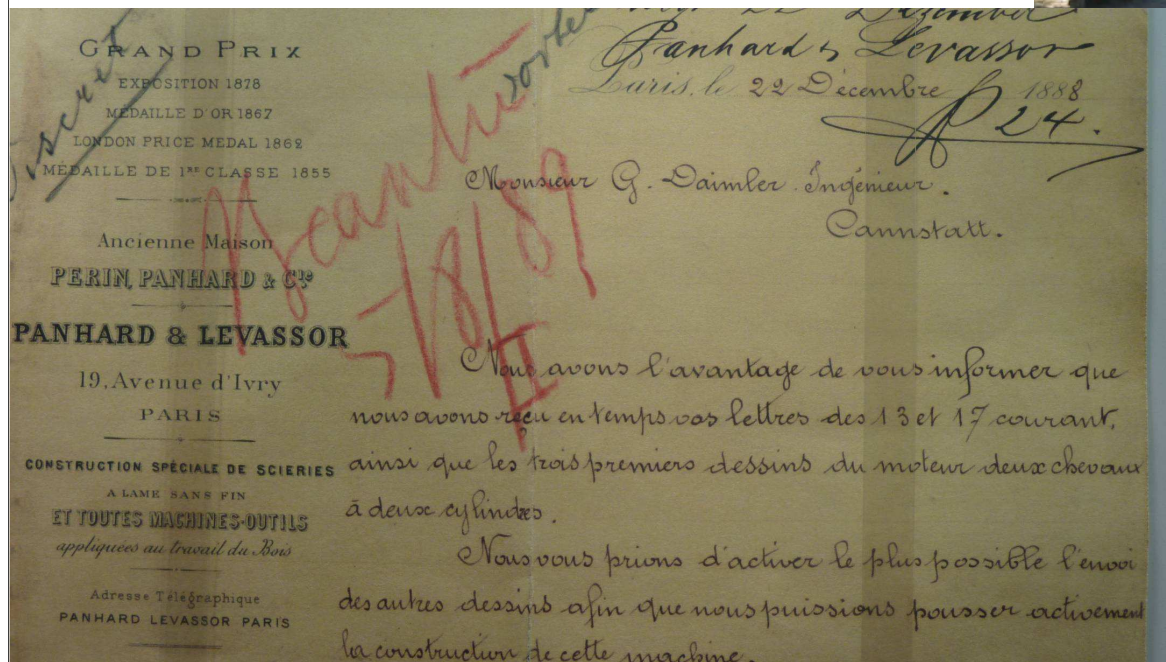 GRAND PRIX
EXPOSITION 1878
MÉDAILLE D'OR 1867
LONDON PRICE MEDAL 1862
MÉDAILLE DE 1RE CLASSE 1855
Ancienne Maison
PERIN, PANHARD & Cie
PANHARD & LEVASSOR
19, Avenue d'Ivry
PARIS
CONSTRUCTION SPÉCIALE DE SCIERIES
A LAME SANS FIN
ET TOUTES MACHINES-OUTILS
appliquées au travail du Bois
Adresse Télégraphique
PANHARD LEVASSOR PARIS
22 Dezember
Panhard & Levassor
Paris, le 22 Décembre 1888
24.
Monsieur G. Daimler Ingénieur.
Cannstatt.
Nous avons l'avantage de vous informer que
nous avons reçu en temps vos lettres des 13 et 17 courant,
ainsi que les trois premiers dessins du moteur deux chevaux
à deux cylindres.
Nous vous prions d'activer le plus possible l'envoi
des autres dessins afin que nous puissions pousser activement
la construction de cette machine.